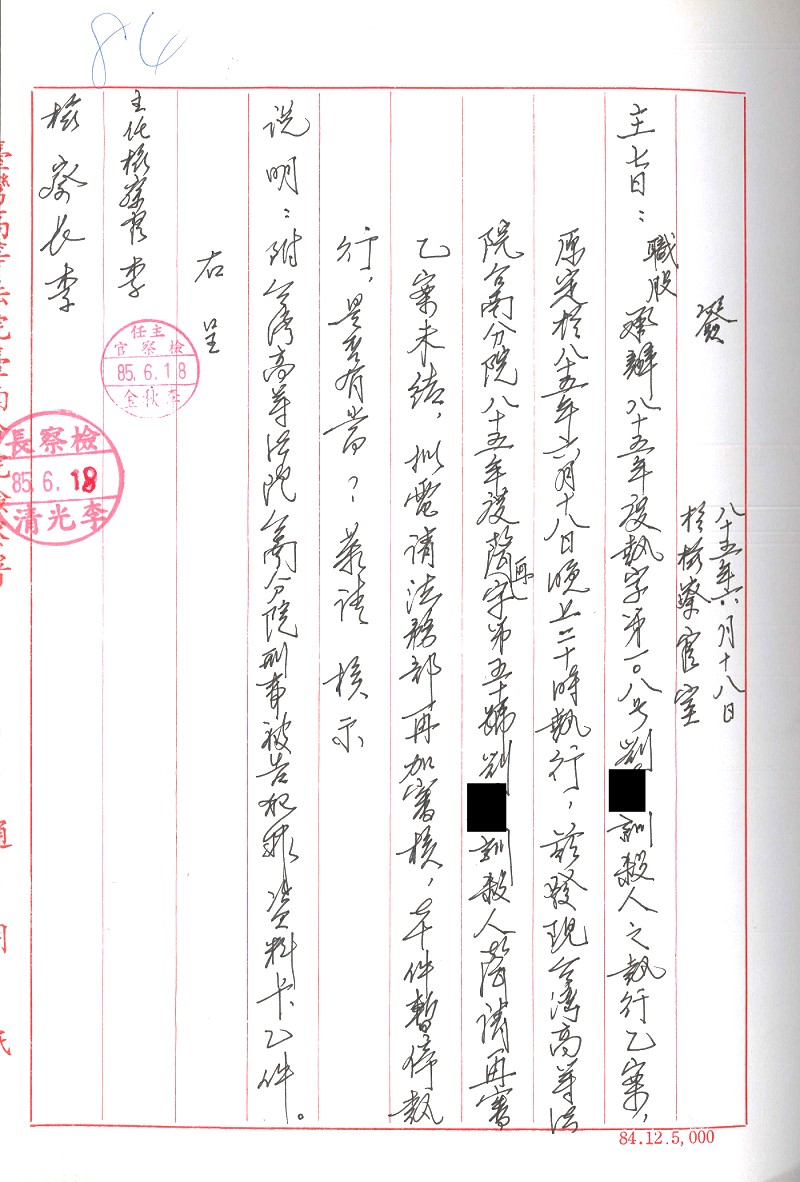 84
簽
八十五年六月十八日
於檢察官室
主旨：職股承辦八十五年度執字第一〇八号劉 訓殺人之執行乙案，
原定於八十五年六月十八日晚上二十時執行，茲發現台灣高等法
院台南分院八十五年度聲再字第五十號劉 訓殺人聲請再審
乙案未結，擬電請法務部再加審核，本件暫停執
行，是否有當？恭請 核示
説明：附台灣高等法院台南分院刑事被告犯罪資料卡乙件。
右呈
主任檢察官 李
主任
檢察官
85.6.18
李秋金
檢察長 李
檢察長
85.6.18
李光清
通 用 紙
84.12.5,000